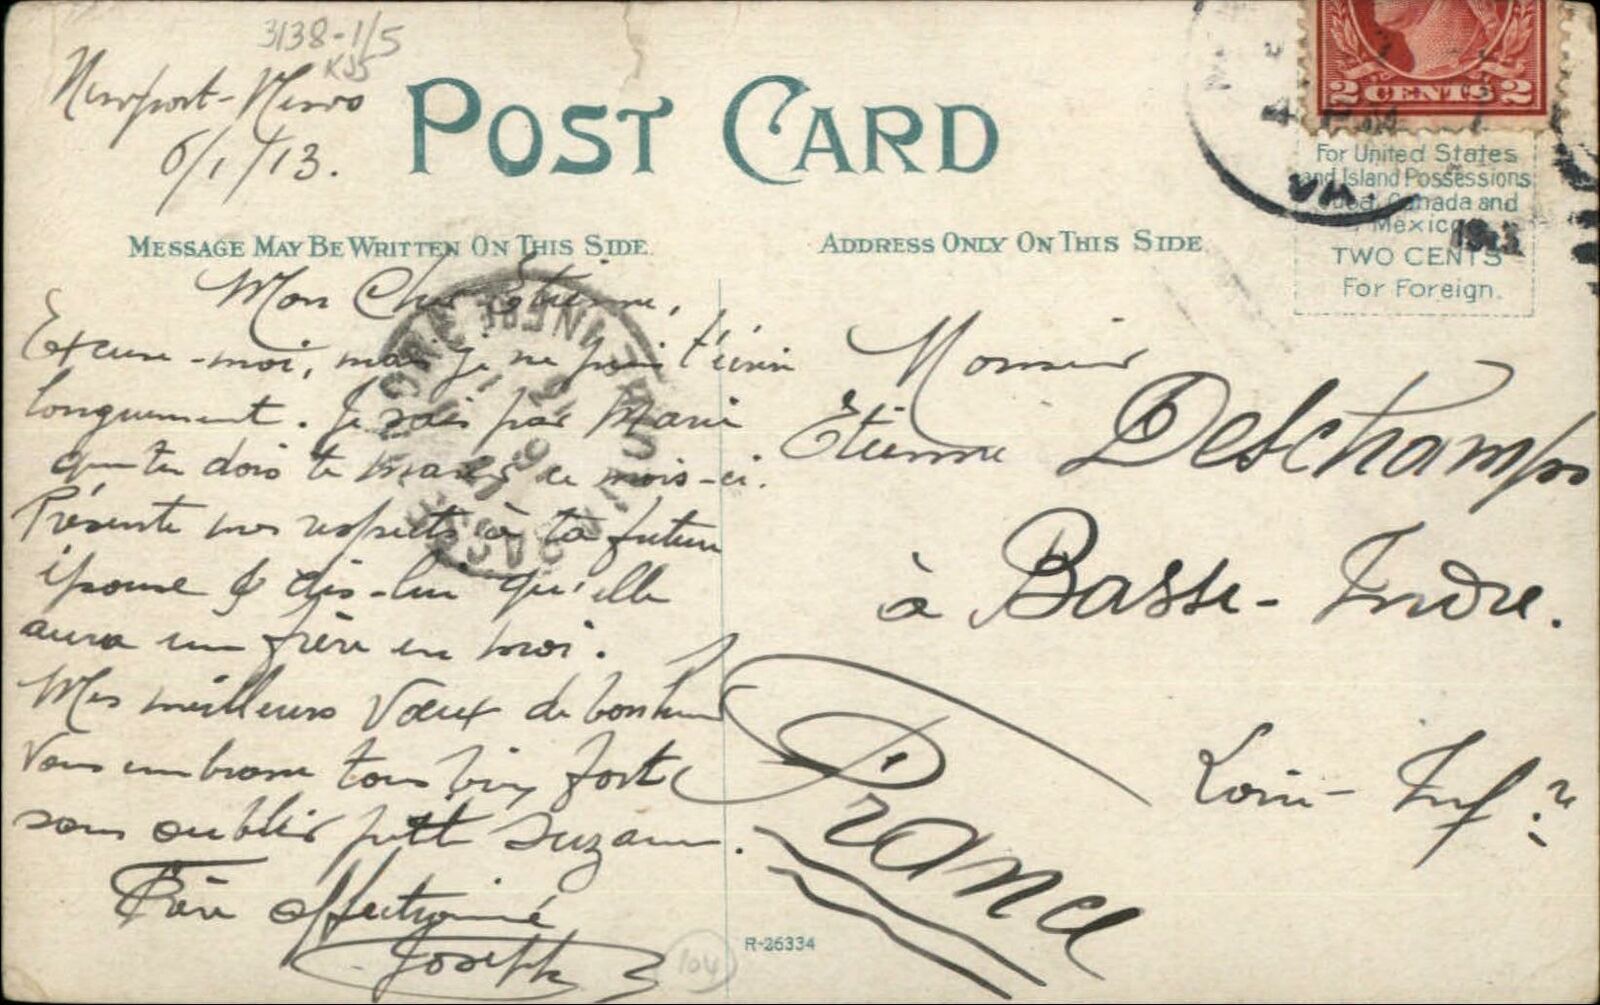 3138-1/5
KJ5
Newport-News
6/1/13.
POST CARD
MESSAGE MAY BE WRITTEN ON THIS SIDE
ADDRESS ONLY ON THIS SIDE
2 CENTS 2
For United States
and Island Possessions
Cuba, Canada and
Mexico
TWO CENTS
For Foreign.
VA.
1913
Mon Cher Etienne,
Excuse-moi, mais je ne puis t'écrire
longuement. Je sais par Marie
que tu dois te marier ce mois-ci.
Présente mes respects à ta future
épouse & dis-lui qu'elle
aura un frère en moi.
Mes meilleurs vœux de bonheur
Vous embrasse tous bien fort
sans oublier petite Suzanne.
Frère affectionné
Joseph
Monsieur
Etienne Deschamps
à Basse-Indre.
Loire-Inf.re
France
R-26334
104